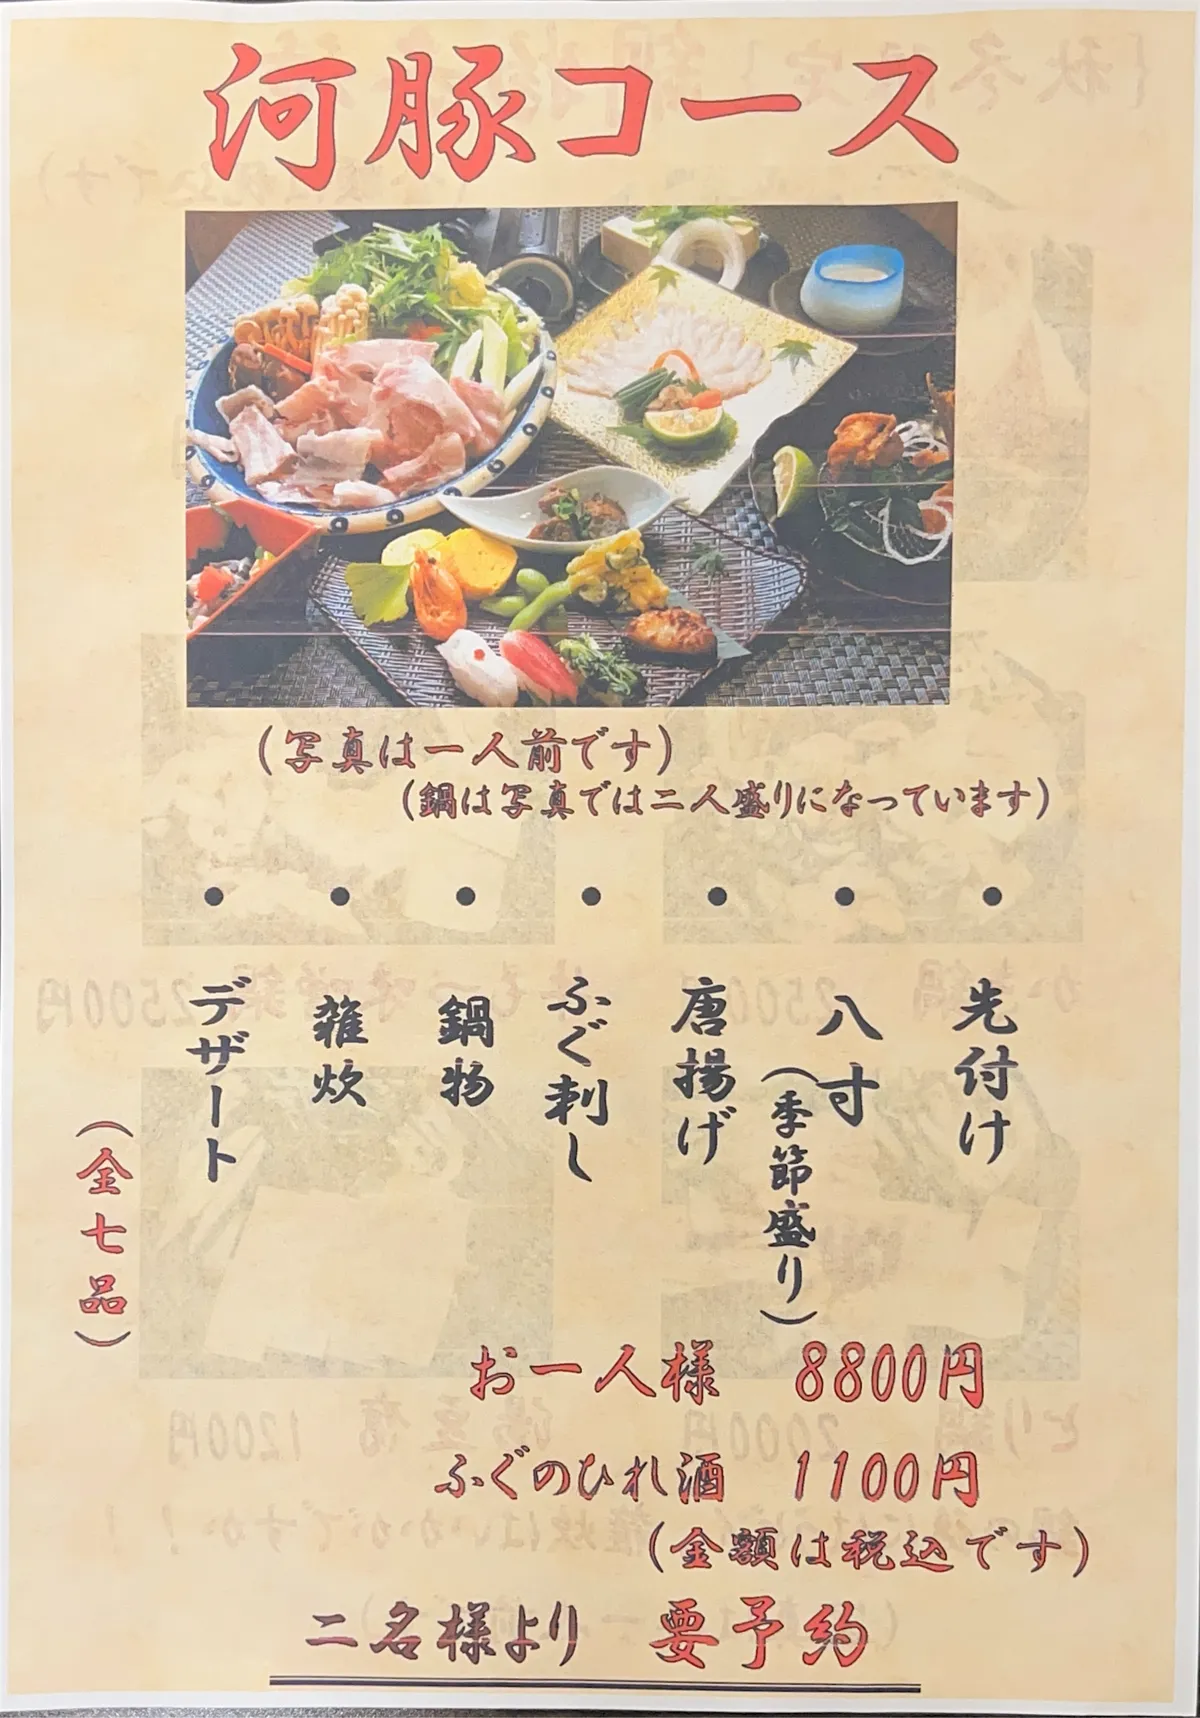 河豚コース
(写真は一人前です)
(鍋は写真では二人盛りになっています)
・先付け
・八寸
(季節盛り)
・唐揚げ
・ふぐ刺し
・鍋物
・雑炊
・デザート
(全七品)
お一人様 8800円
ふぐのひれ酒 1100円
(金額は税込です)
二名様より 要予約